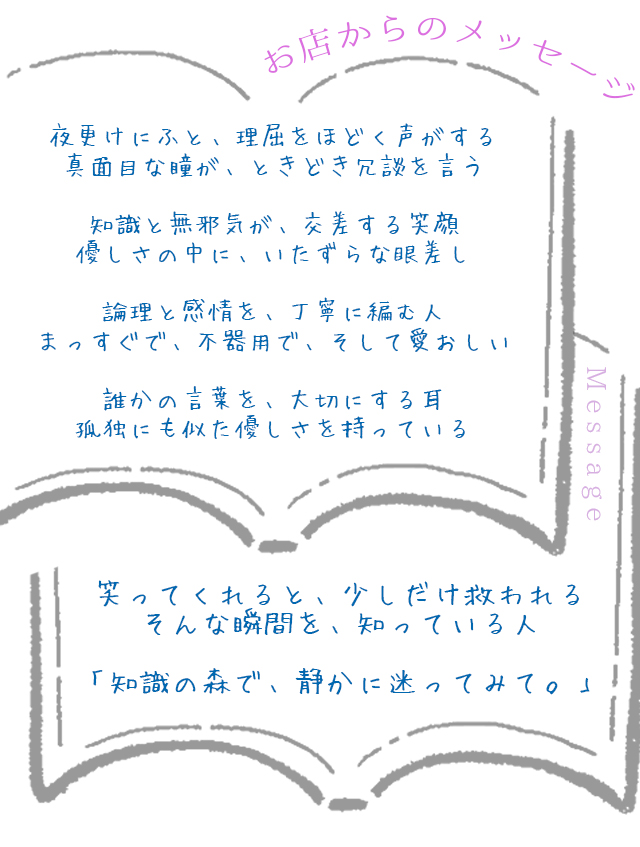 お店からのメッセージ
夜更けにふと、理屈をほどく声がする
真面目な瞳が、ときどき冗談を言う
知識と無邪気が、交差する笑顔
優しさの中に、いたずらな眼差し
論理と感情を、丁寧に編む人
まっすぐで、不器用で、そして愛おしい
誰かの言葉を、大切にする耳
孤独にも似た優しさを持っている
Message
笑ってくれると、少しだけ救われる
そんな瞬間を、知っている人
「知識の森で、静かに迷ってみて。」